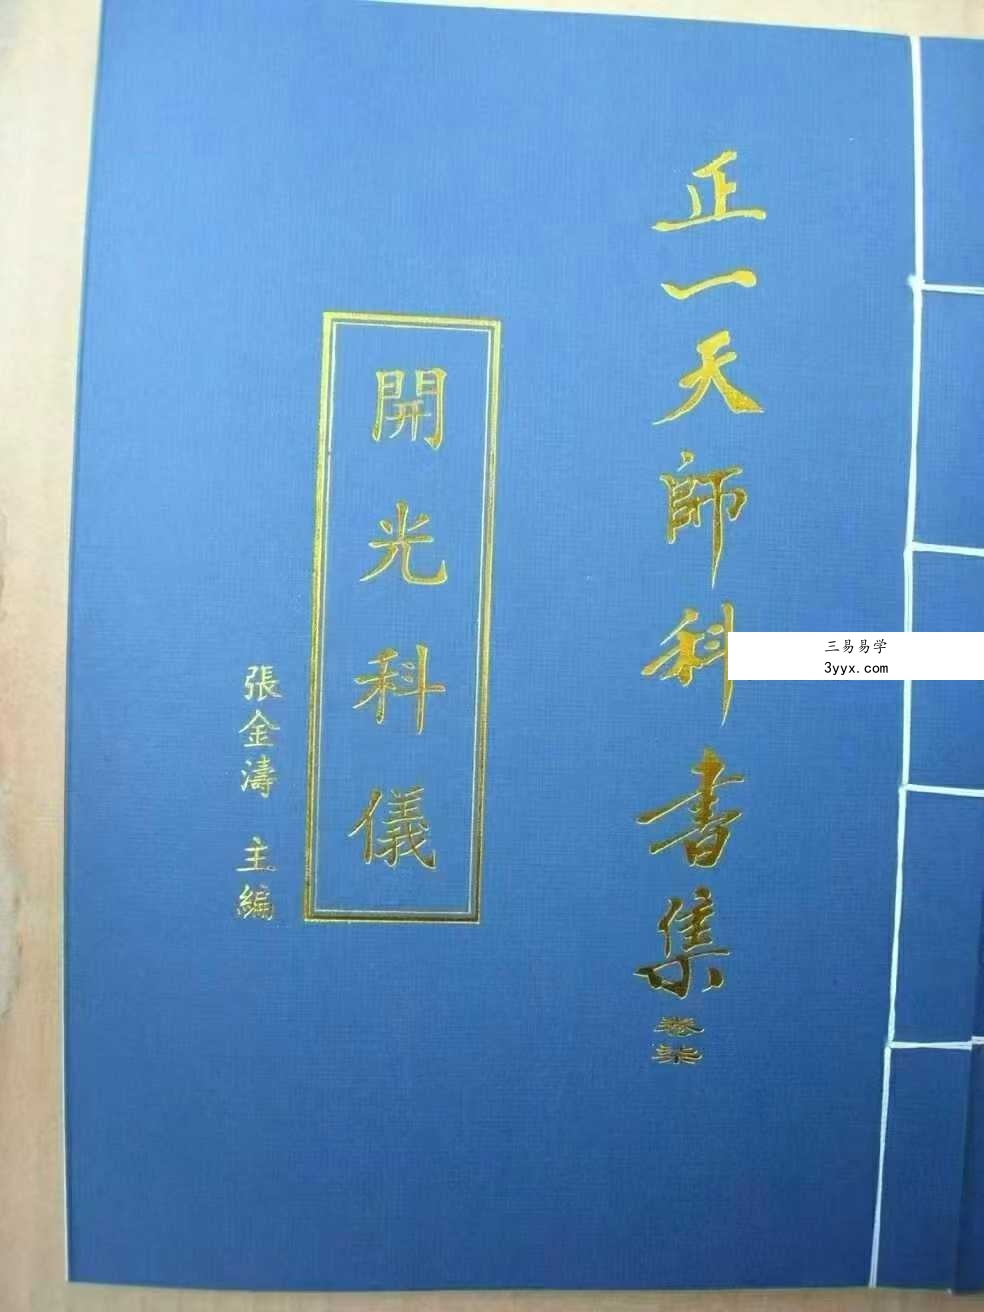 正一天師科書集
卷柒
開光科儀
張金濤 主編
三易易学
3yyx.com